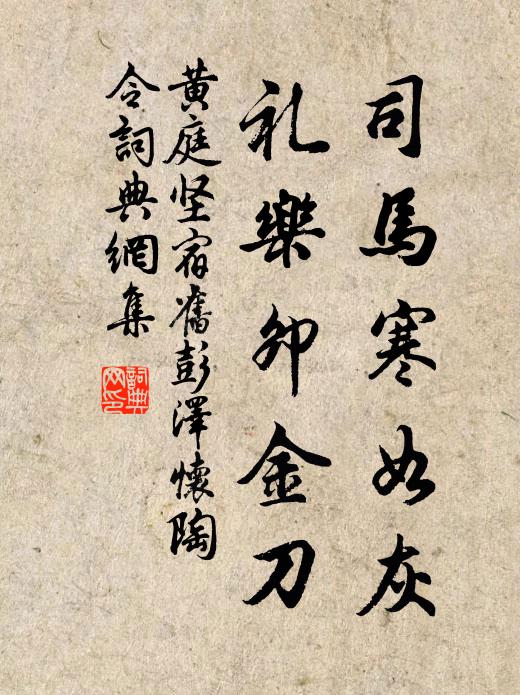 司馬寒如灰
礼樂卯金刀
黄庭坚宿舊彭澤懷陶
令詞典網集
詞典
网印